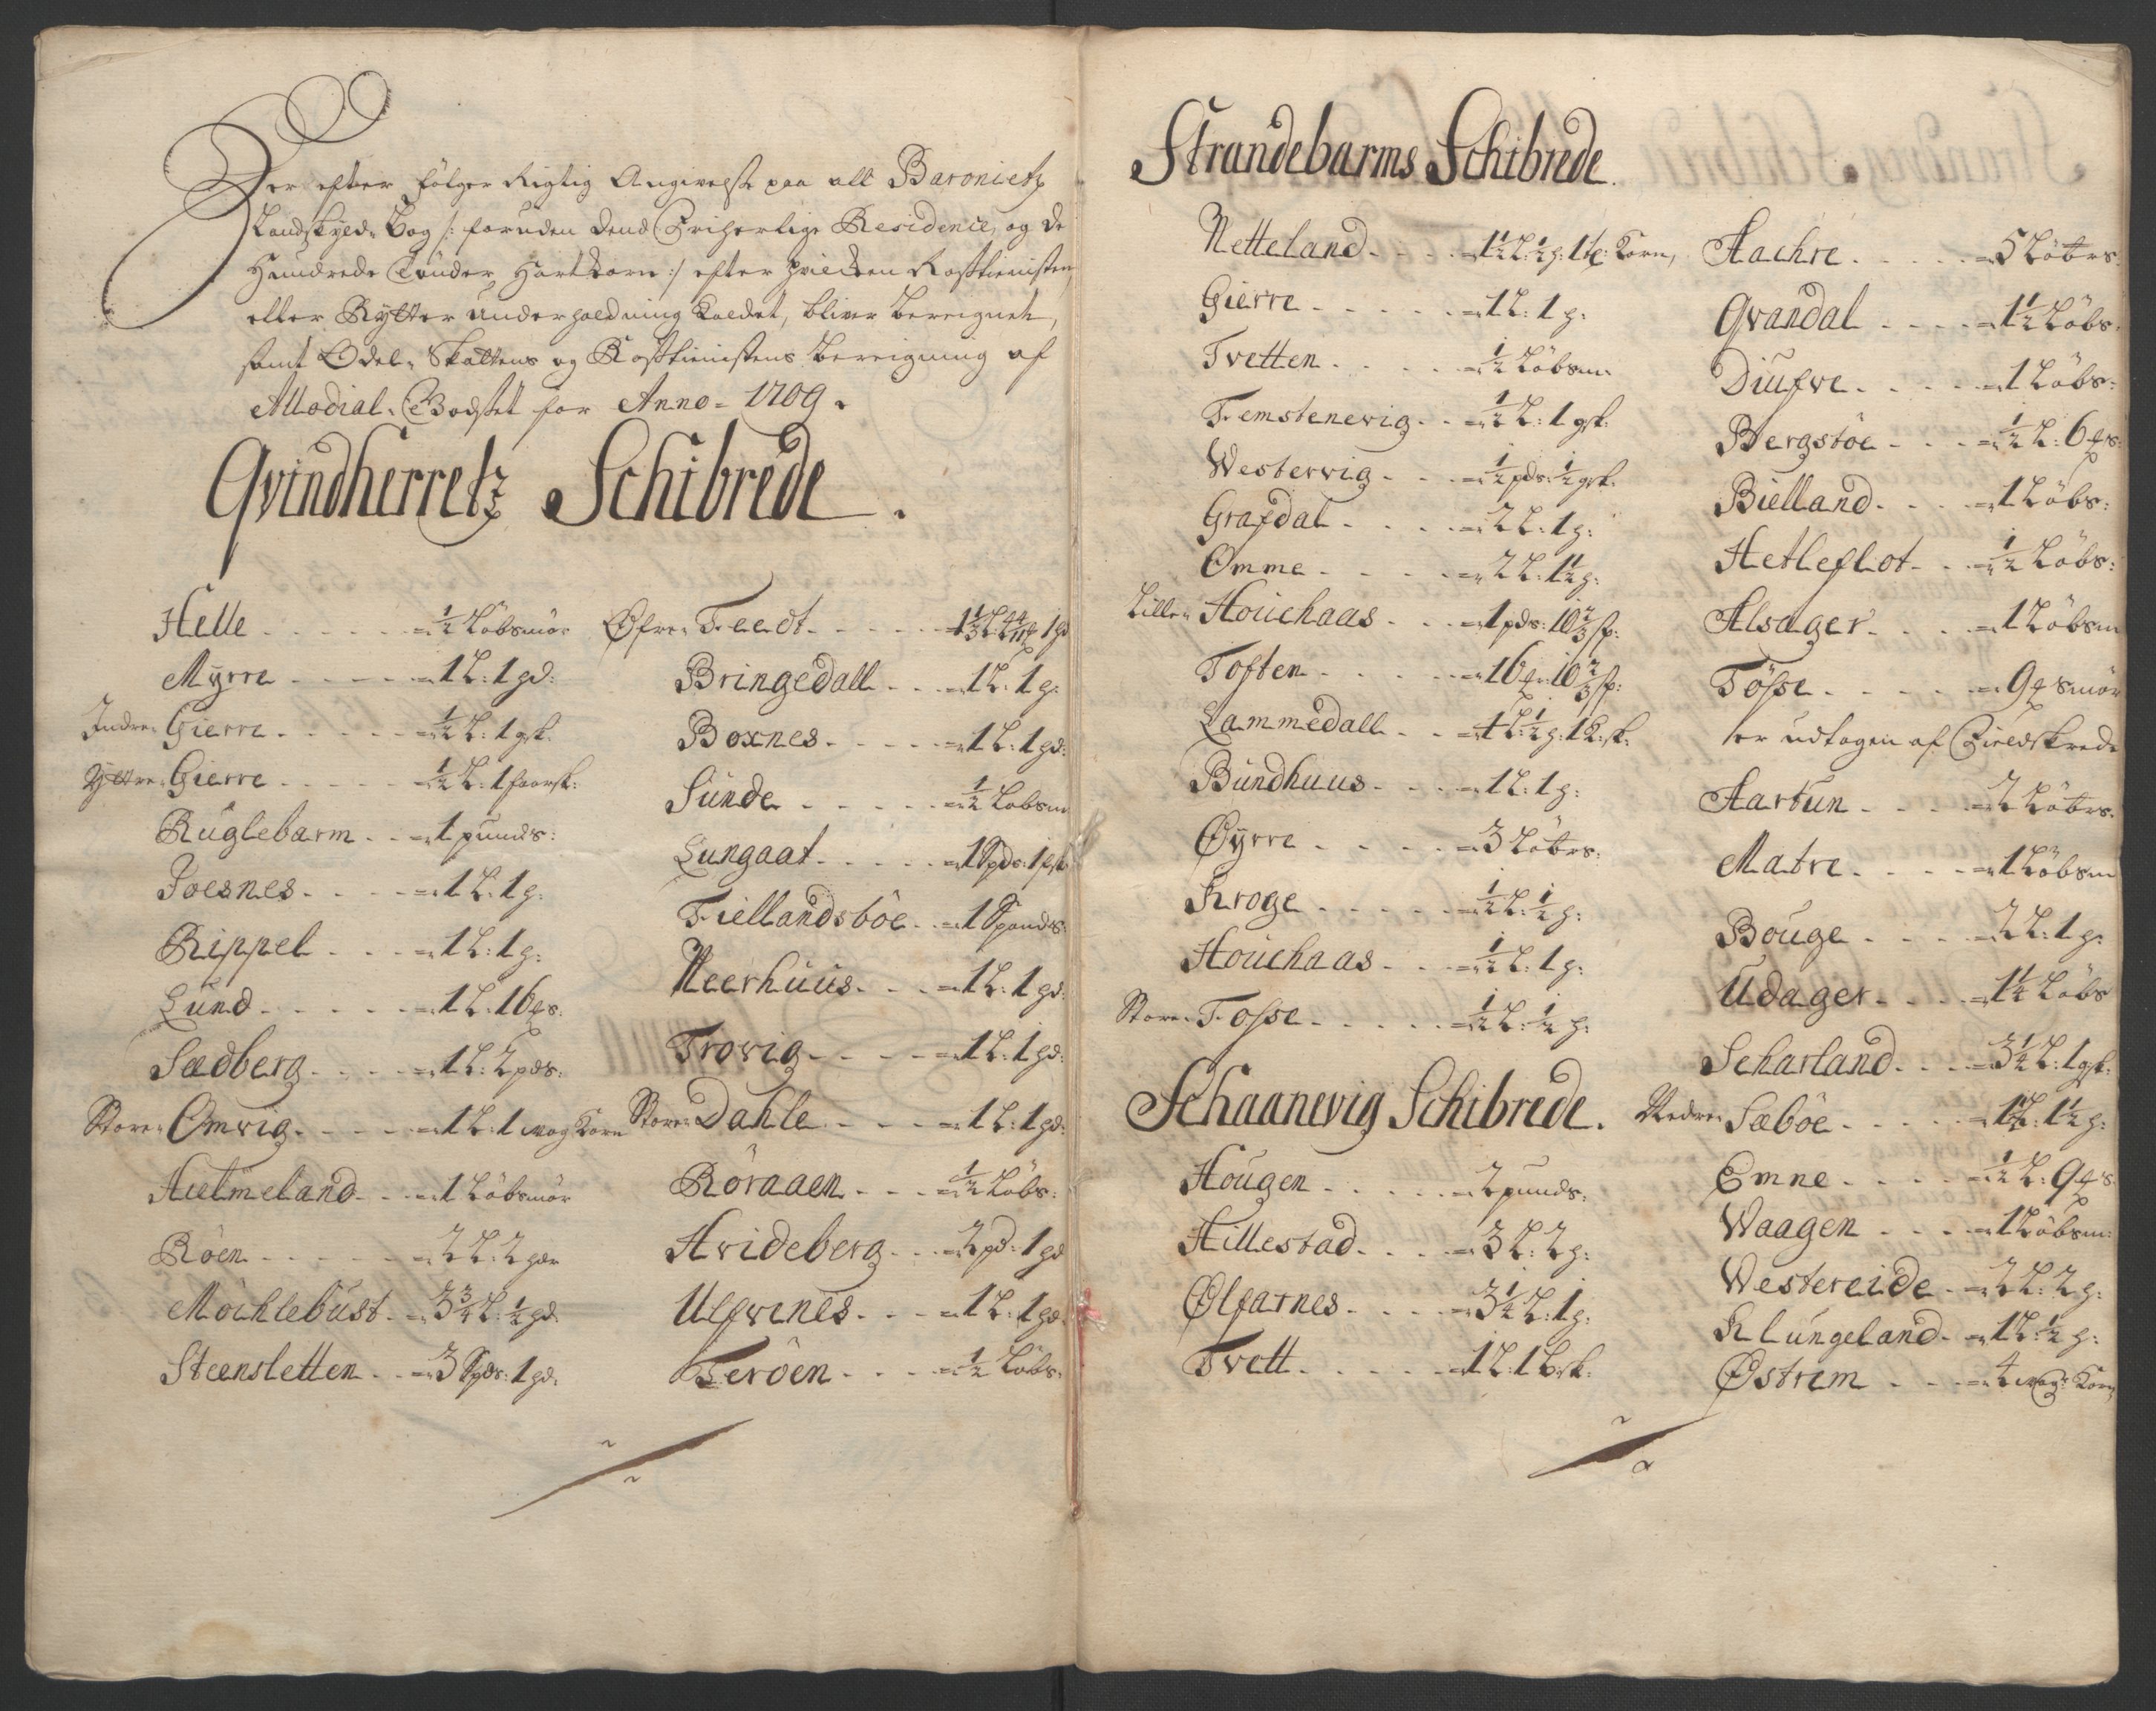 Her efter følger Rigtig Angivelse paa alt Baronietz
Landskyld Bog /: foruden dend Friherlige Residence, og de
Hundrede Tønder Hartkorn :/ efter hvilcken Rosztienisten
eller Rytter underholdning kaldet, bliver bereignet,
samt Odel-Skattens og Rosztienistens bereigning af
Allodial-Godset for Anno 1709.
Qvindherretz Schibrede.
Helle - - - - - ½ Löbsmör
Myrre - - - - - 1 L: 1 gd:
Indre Gierre - - - - - ½ L: 1 gsk:
Yttre Gierre - - - - - ½ L: 1 faarsk:
Ruglebarm - - 1 punds:
Joesnes - - - - 1 L: 1 g:
Rippel - - - 1 L: 1 g:
Lund - - - - - 1 L: 16 s:
Sædberg - - - - 1 L: 2 pds:
Store Omvig - - - - - 1 L: 1 Wog Korn
Hielmeland - - - 1 Löbsmör
Röen - - - - - 2 L: 2 gdr
Möchlebust - 3¾ L: ½ gd:
Steensletten - - 3 Spds: 1 gd:
Øfre Feedt - - - - -
Bringedall - - - 1 L: 1 g:
Boxnes - - - - - 1 L: 1 gd:
Sunde - - - - - ½ Løbsm
Lungaat - - - - - 1 Spds: 1
Fiellandsböe - - 1 Spands:
Neerhuus - - - 1 L: 1 gd:
Trovig - - - - 1 L: 1 gd:
Store Dahle - - - - 1 L: 1 gd:
Röraaen - - - ½ Löbs:
Hvideberg - - - 2 pd: 1 gd
Ulfvenes - - - 1 L: 1 gd
Teröen - - - - ½ Löbs:
Strandebarms Schibrede.
Netteland - - - - 1½ L: ½ g: 1 t: Korn,
Gierre - - - - - 1 L: 1 g:
Tvetten - - - - - ½ Löbsm
Femstenevig - - ½ L: 1 gsk:
Westervig - - - ½ pds: ½ gsk:
Grafdal - - - - 2 L: 1 g:
Omme - - - - - 2 L: 1½ g:
Lille Houchaas - - - 1 pds: 10⅔ sk:
Toften - - - - - 16 10⅔ sk:
Lammedall - - 1 L: ½ g: 1 k: sk:
Bundhuus - - - 1 L: 1 g:
Øyrre - - - - 3 Löbs:
Kroge - - - - - ½ L: ½ g:
Houchaas - - - ½ L: 1 g:
Store Fosse - - - - - ½ L: ½ g:
Schaanevig Schibrede.
Hougen - - - - - 2 punds:
Hillestad - - - - 3 L: 2 g:
Ølfarnes - - - - 3¼ L: 1 g:
Tvett - - - - - 1 L: 1 b: sk:
Aachre - - - - - 5 Löbs
Qvandal - - - - 1½ Löbs:
Diufve - - - - 1 Löbs:
Bergstöe - - - - ½ L: 6 s:
Bielland - - - - 1 Löbs:
Hetleflot - - - ½ Löbs:
Alsager - - - - 1 Löbsm
Tösse - - - - - 9 smör
er udtagen af Fieldskrede
Aartun - - - - 2 Löbs:
Matre - - - - 1 Löbsm
Bouge - - - - 2 L: 1 g:
Udager - - - - 1¼ Löbs
Scharland - - - 3¼ L: 1 gsk:
Nedre Sæböe - - - - - 1 L: 1½ g:
Emne - - - - - ½ L: 9 s
Waagen - - - - 1 Löbsm:
Westereide - 2 L: 2 g:
Klungeland - 1 L: ½ g:
Østrem - - - 4 Wog: Korn